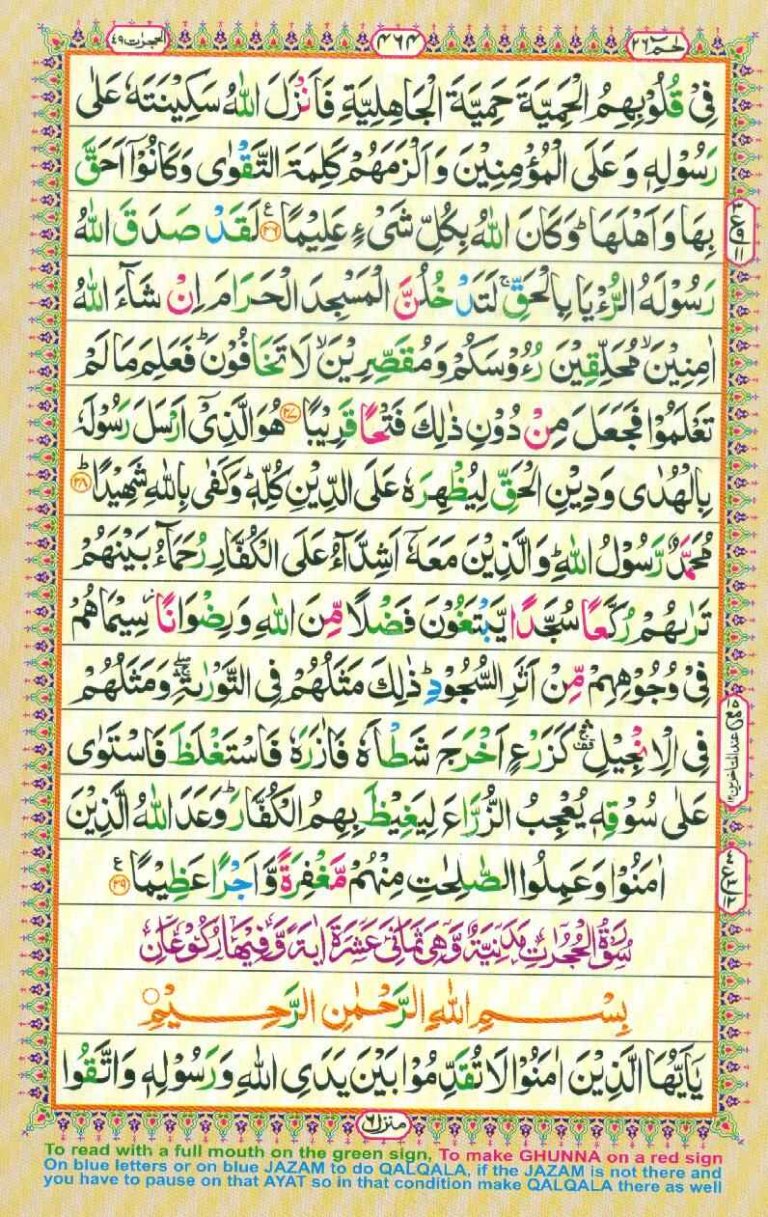 حٰمٓ ٢٦
٤٦٤
الحجرٰت ٤٩
فِیْ قُلُوْبِهِمُ الْحَمِیَّةَ حَمِیَّةَ الْجَاهِلِیَّةِ فَاَنْزَلَ اللّٰهُ سَكِیْنَتَهٗ عَلٰی
رَسُوْلِهٖ وَ عَلَی الْمُؤْمِنِیْنَ وَ اَلْزَمَهُمْ كَلِمَةَ التَّقْوٰی وَ كَانُوْۤا اَحَقَّ
بِهَا وَ اَهْلَهَا ؕ وَ كَانَ اللّٰهُ بِكُلِّ شَیْءٍ عَلِیْمًا ﴿٢٦﴾ ع لَقَدْ صَدَقَ اللّٰهُ
رَسُوْلَهُ الرُّءْیَا بِالْحَقِّ ۚ لَتَدْخُلُنَّ الْمَسْجِدَ الْحَرَامَ اِنْ شَآءَ اللّٰهُ
اٰمِنِیْنَ ۙ مُحَلِّقِیْنَ رُءُوْسَكُمْ وَ مُقَصِّرِیْنَ ۙ لَا تَخَافُوْنَ ؕ فَعَلِمَ مَا لَمْ
تَعْلَمُوْا فَجَعَلَ مِنْ دُوْنِ ذٰلِكَ فَتْحًا قَرِیْبًا ﴿٢٧﴾ هُوَ الَّذِیْۤ اَرْسَلَ رَسُوْلَهٗ
بِالْهُدٰی وَ دِیْنِ الْحَقِّ لِیُظْهِرَهٗ عَلَی الدِّیْنِ كُلِّهٖ ؕ وَ كَفٰی بِاللّٰهِ شَهِیْدًا ؕ﴿٢٨﴾
مُحَمَّدٌ رَّسُوْلُ اللّٰهِ ؕ وَ الَّذِیْنَ مَعَهٗۤ اَشِدَّآءُ عَلَی الْكُفَّارِ رُحَمَآءُ بَیْنَهُمْ
تَرٰىهُمْ رُكَّعًا سُجَّدًا یَّبْتَغُوْنَ فَضْلًا مِّنَ اللّٰهِ وَ رِضْوَانًا ؗ سِیْمَاهُمْ
فِیْ وُجُوْهِهِمْ مِّنْ اَثَرِ السُّجُوْدِ ؕ ذٰلِكَ مَثَلُهُمْ فِی التَّوْرٰىةِ ۛۖۚ وَ مَثَلُهُمْ
فِی الْاِنْجِیْلِ ۛ۫ۚ كَزَرْعٍ اَخْرَجَ شَطْـَٔهٗ فَاٰزَرَهٗ فَاسْتَغْلَظَ فَاسْتَوٰی
عَلٰی سُوْقِهٖ یُعْجِبُ الزُّرَّاعَ لِیَغِیْظَ بِهِمُ الْكُفَّارَ ؕ وَعَدَ اللّٰهُ الَّذِیْنَ
اٰمَنُوْا وَ عَمِلُوا الصّٰلِحٰتِ مِنْهُمْ مَّغْفِرَةً وَّ اَجْرًا عَظِیْمًا ﴿٢٩﴾ ع
سُوْرَةُ الْحُجُرٰتِ مَدَنِیَّةٌ وَّ هِیَ ثَمَانِیَ عَشَرَةَ اٰیَةً وَّ فِیْهَا رُكُوْعَانِ
بِسْمِ اللّٰهِ الرَّحْمٰنِ الرَّحِیْمِ
یٰۤاَیُّهَا الَّذِیْنَ اٰمَنُوْا لَا تُقَدِّمُوْا بَیْنَ یَدَیِ اللّٰهِ وَ رَسُوْلِهٖ وَ اتَّقُوا
منزل ٦
To read with a full mouth on the green sign, To make GHUNNA on a red sign
On blue letters or on blue JAZAM to do QALQALA, if the JAZAM is not there and
you have to pause on that AYAT so in that condition make QALQALA there as well